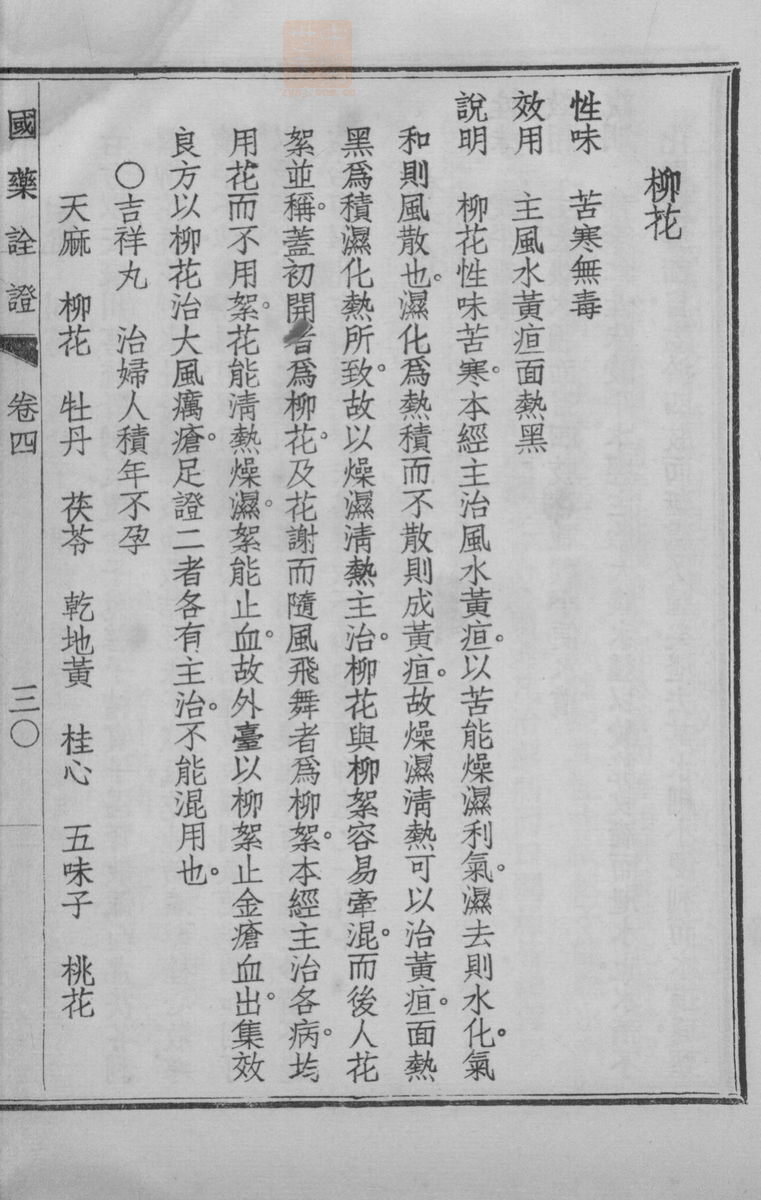 柳花
性味　苦寒無毒
效用　主風水黃疸面熱黑
說明　柳花性味苦寒。本經主治風水黃疸。以苦能燥濕利氣。濕去則水化。氣
和則風散也。濕化爲熱積而不散則成黃疸。故燥濕淸熱可以治黃疸。面熱
黑爲積濕化熱所致。故以燥濕淸熱主治。柳花與柳絮容易牽混。而後人花
絮並稱。蓋初開者爲柳花。及花謝而隨風飛舞者爲柳絮。本經主治各病。均
用花而不用絮。花能淸熱燥濕。絮能止血。故外臺以柳絮止金瘡血出。集效
良方以柳花治大風癘瘡。足證二者各有主治。不能混用也。
〇吉祥丸　治婦人積年不孕
天麻　柳花　牡丹　茯苓　乾地黃　桂心　五味子　桃花
國藥詮證　卷四　三〇